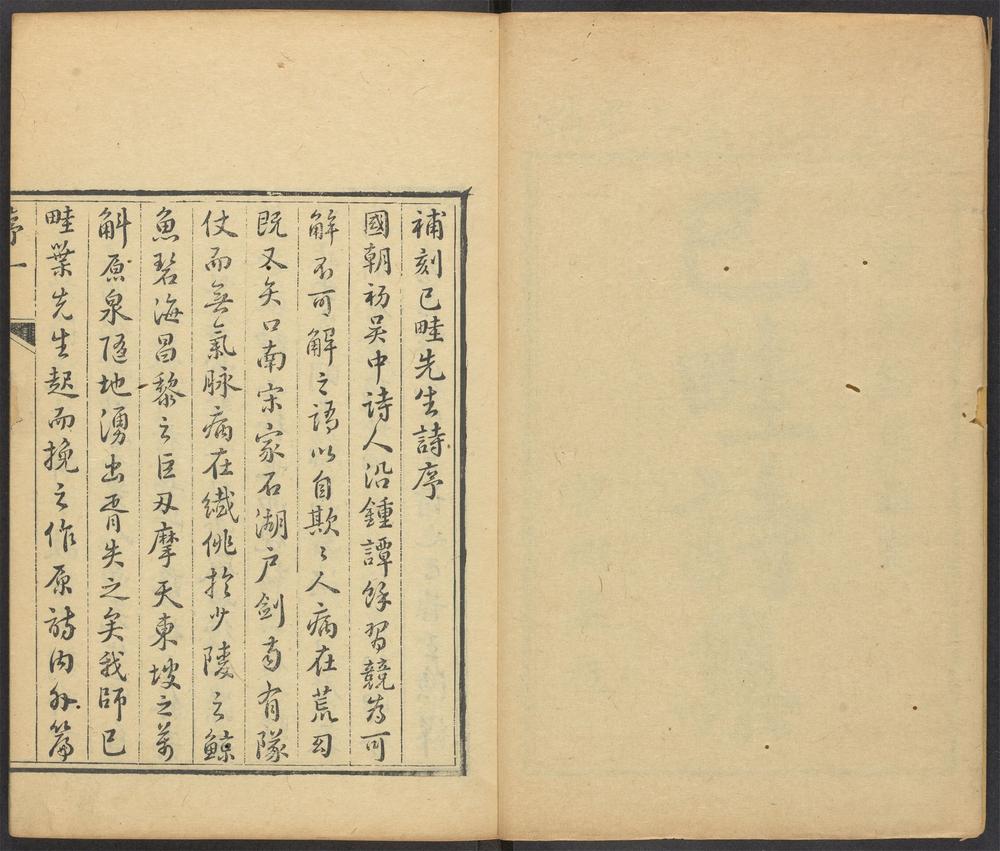 補刻已畦先生詩序
國朝初吳中詩人沿鍾譚餘習競為可
解不可解之語以自欺〻人病在荒幻
既又矣口南宋家石湖户劍南有隊
仗而無氣脉病在纖佻於少陵之鯨
魚碧海昌黎之巨刃摩天東坡之萬
斛原泉隨地湧出胥失之矣我師已
畦葉先生起而挽之作原詩内外篇
序一